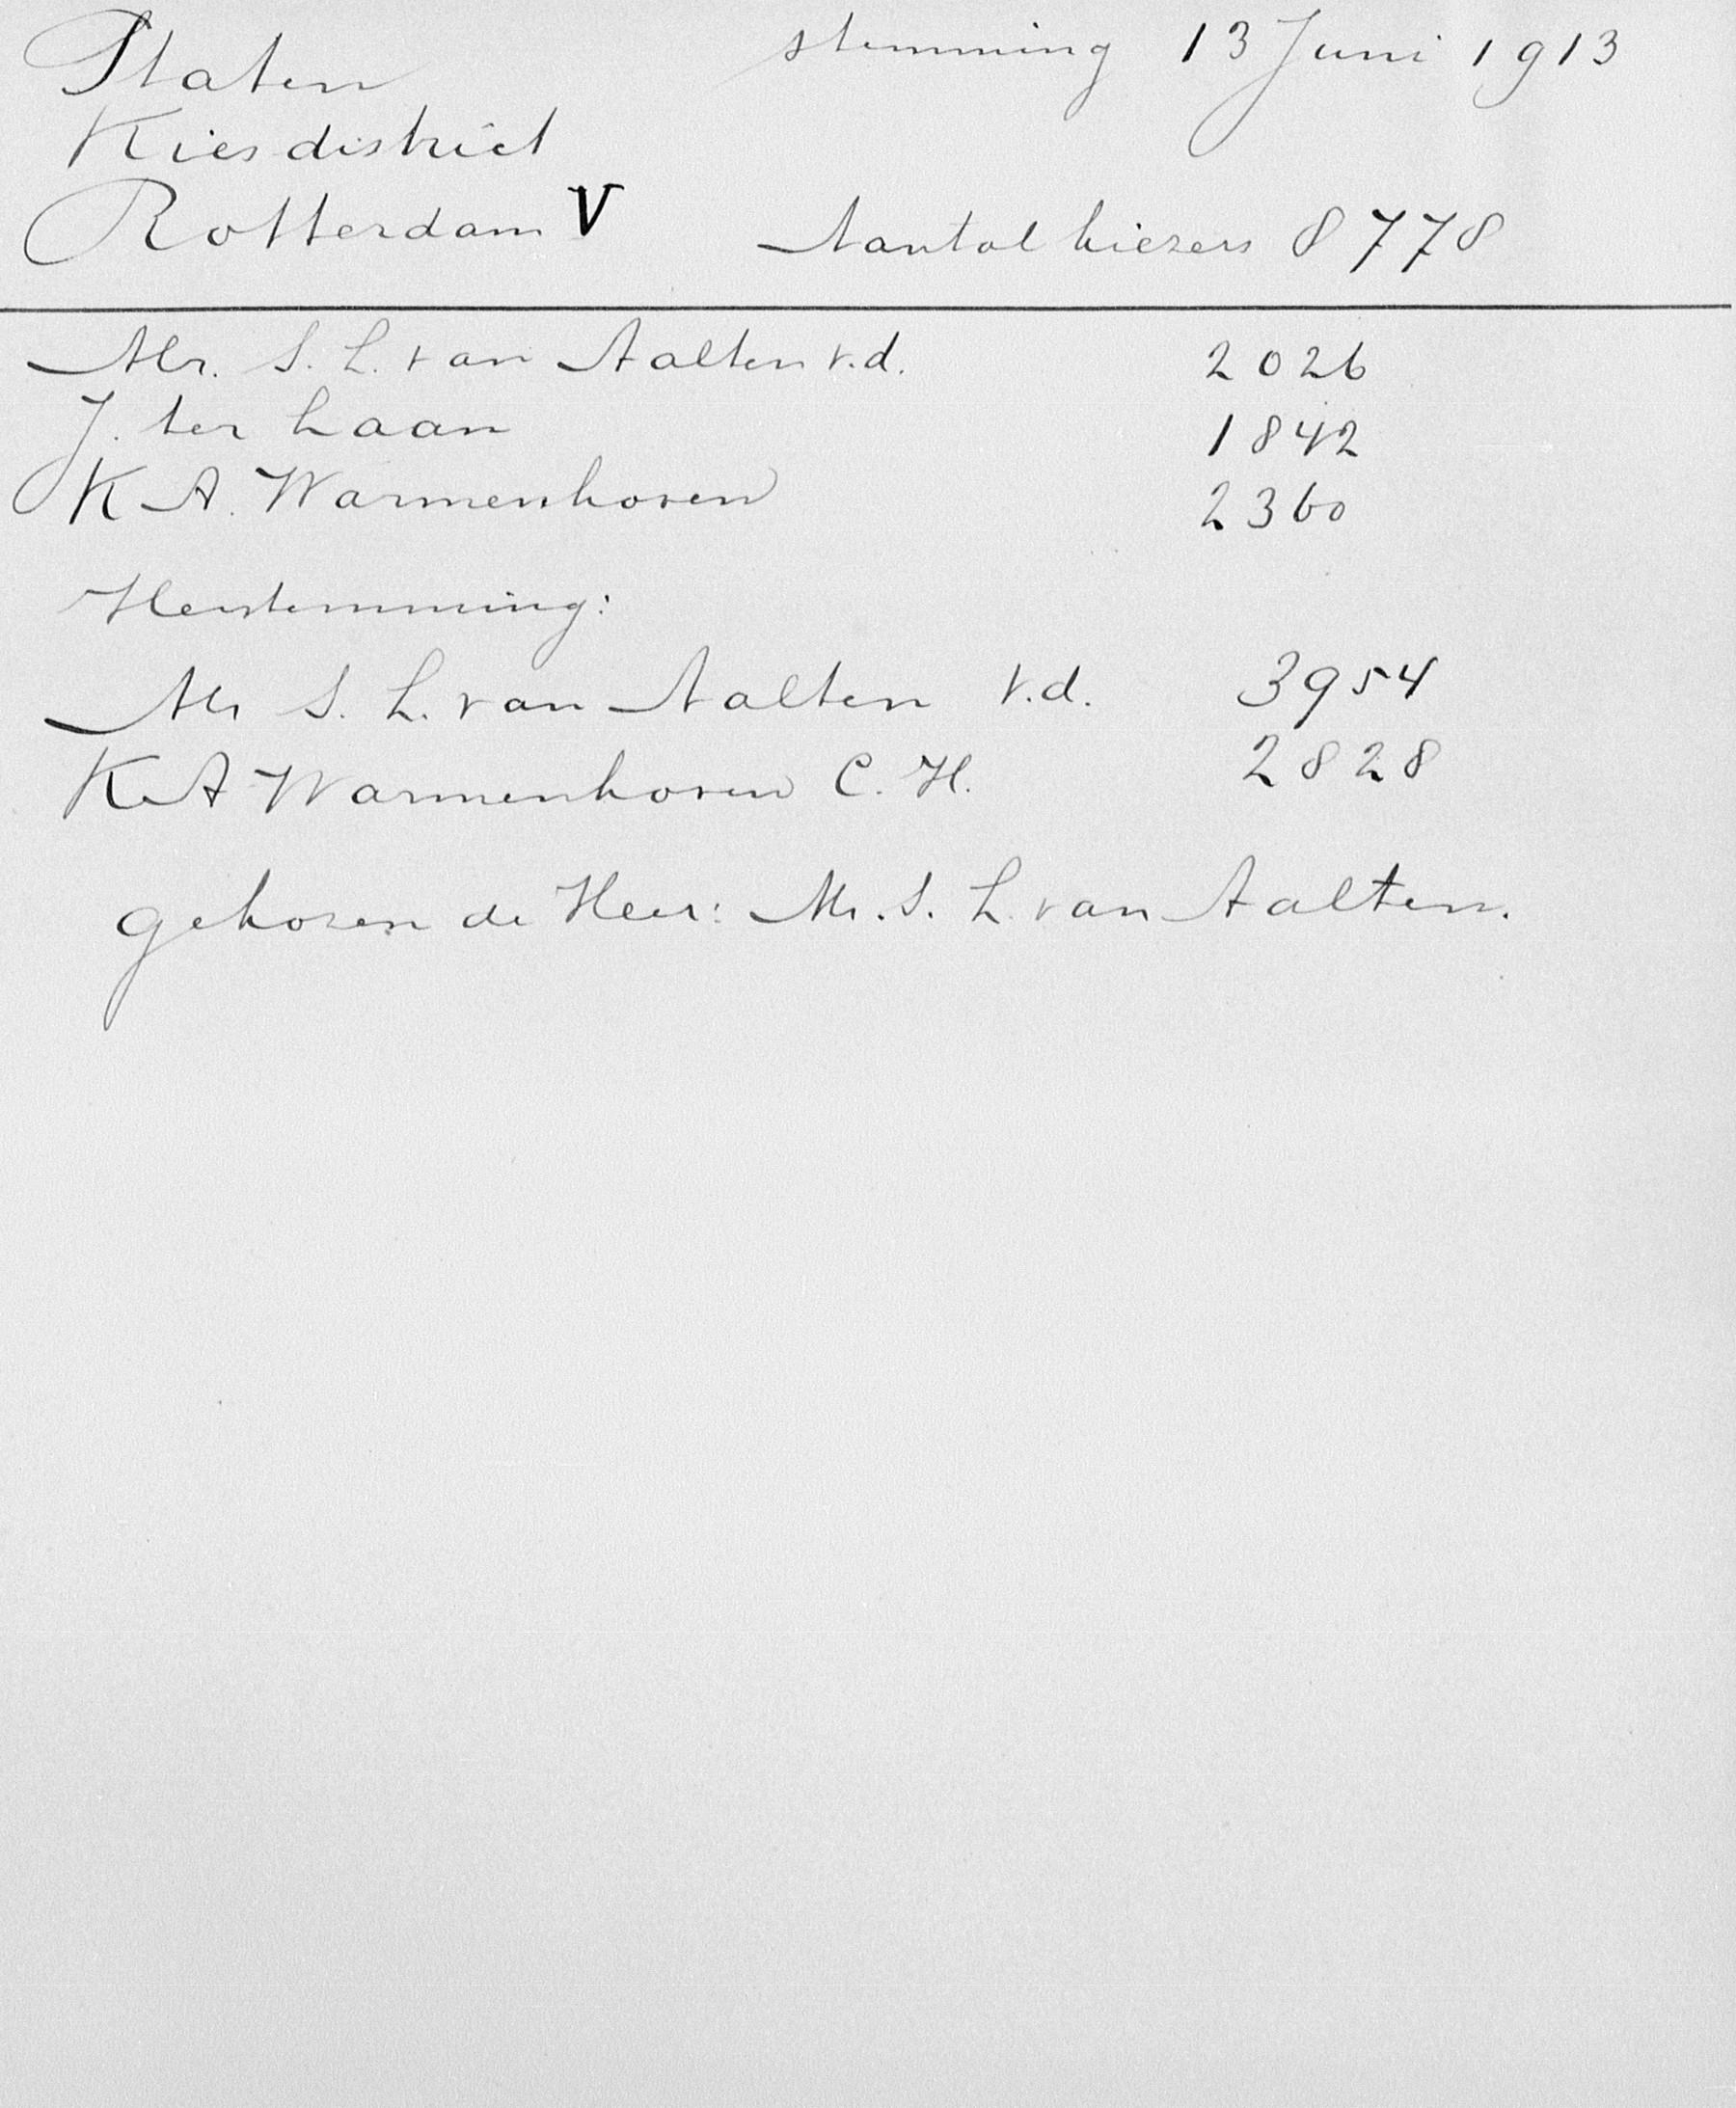 Staten stemming 13 Juni 1913
Kiesdistrict
Rotterdam V Aantal kiezers 8778
Mr. S. L. van Aalten v.d. 2026
J. ter Laan 1842
K A. Warmenhoven 2360
Herstemming:
Mr S. L. van Aalten v.d. 3954
K A Warmenhoven C. H. 2828
gekozen de Heer: Mr. S. L. van Aalten.